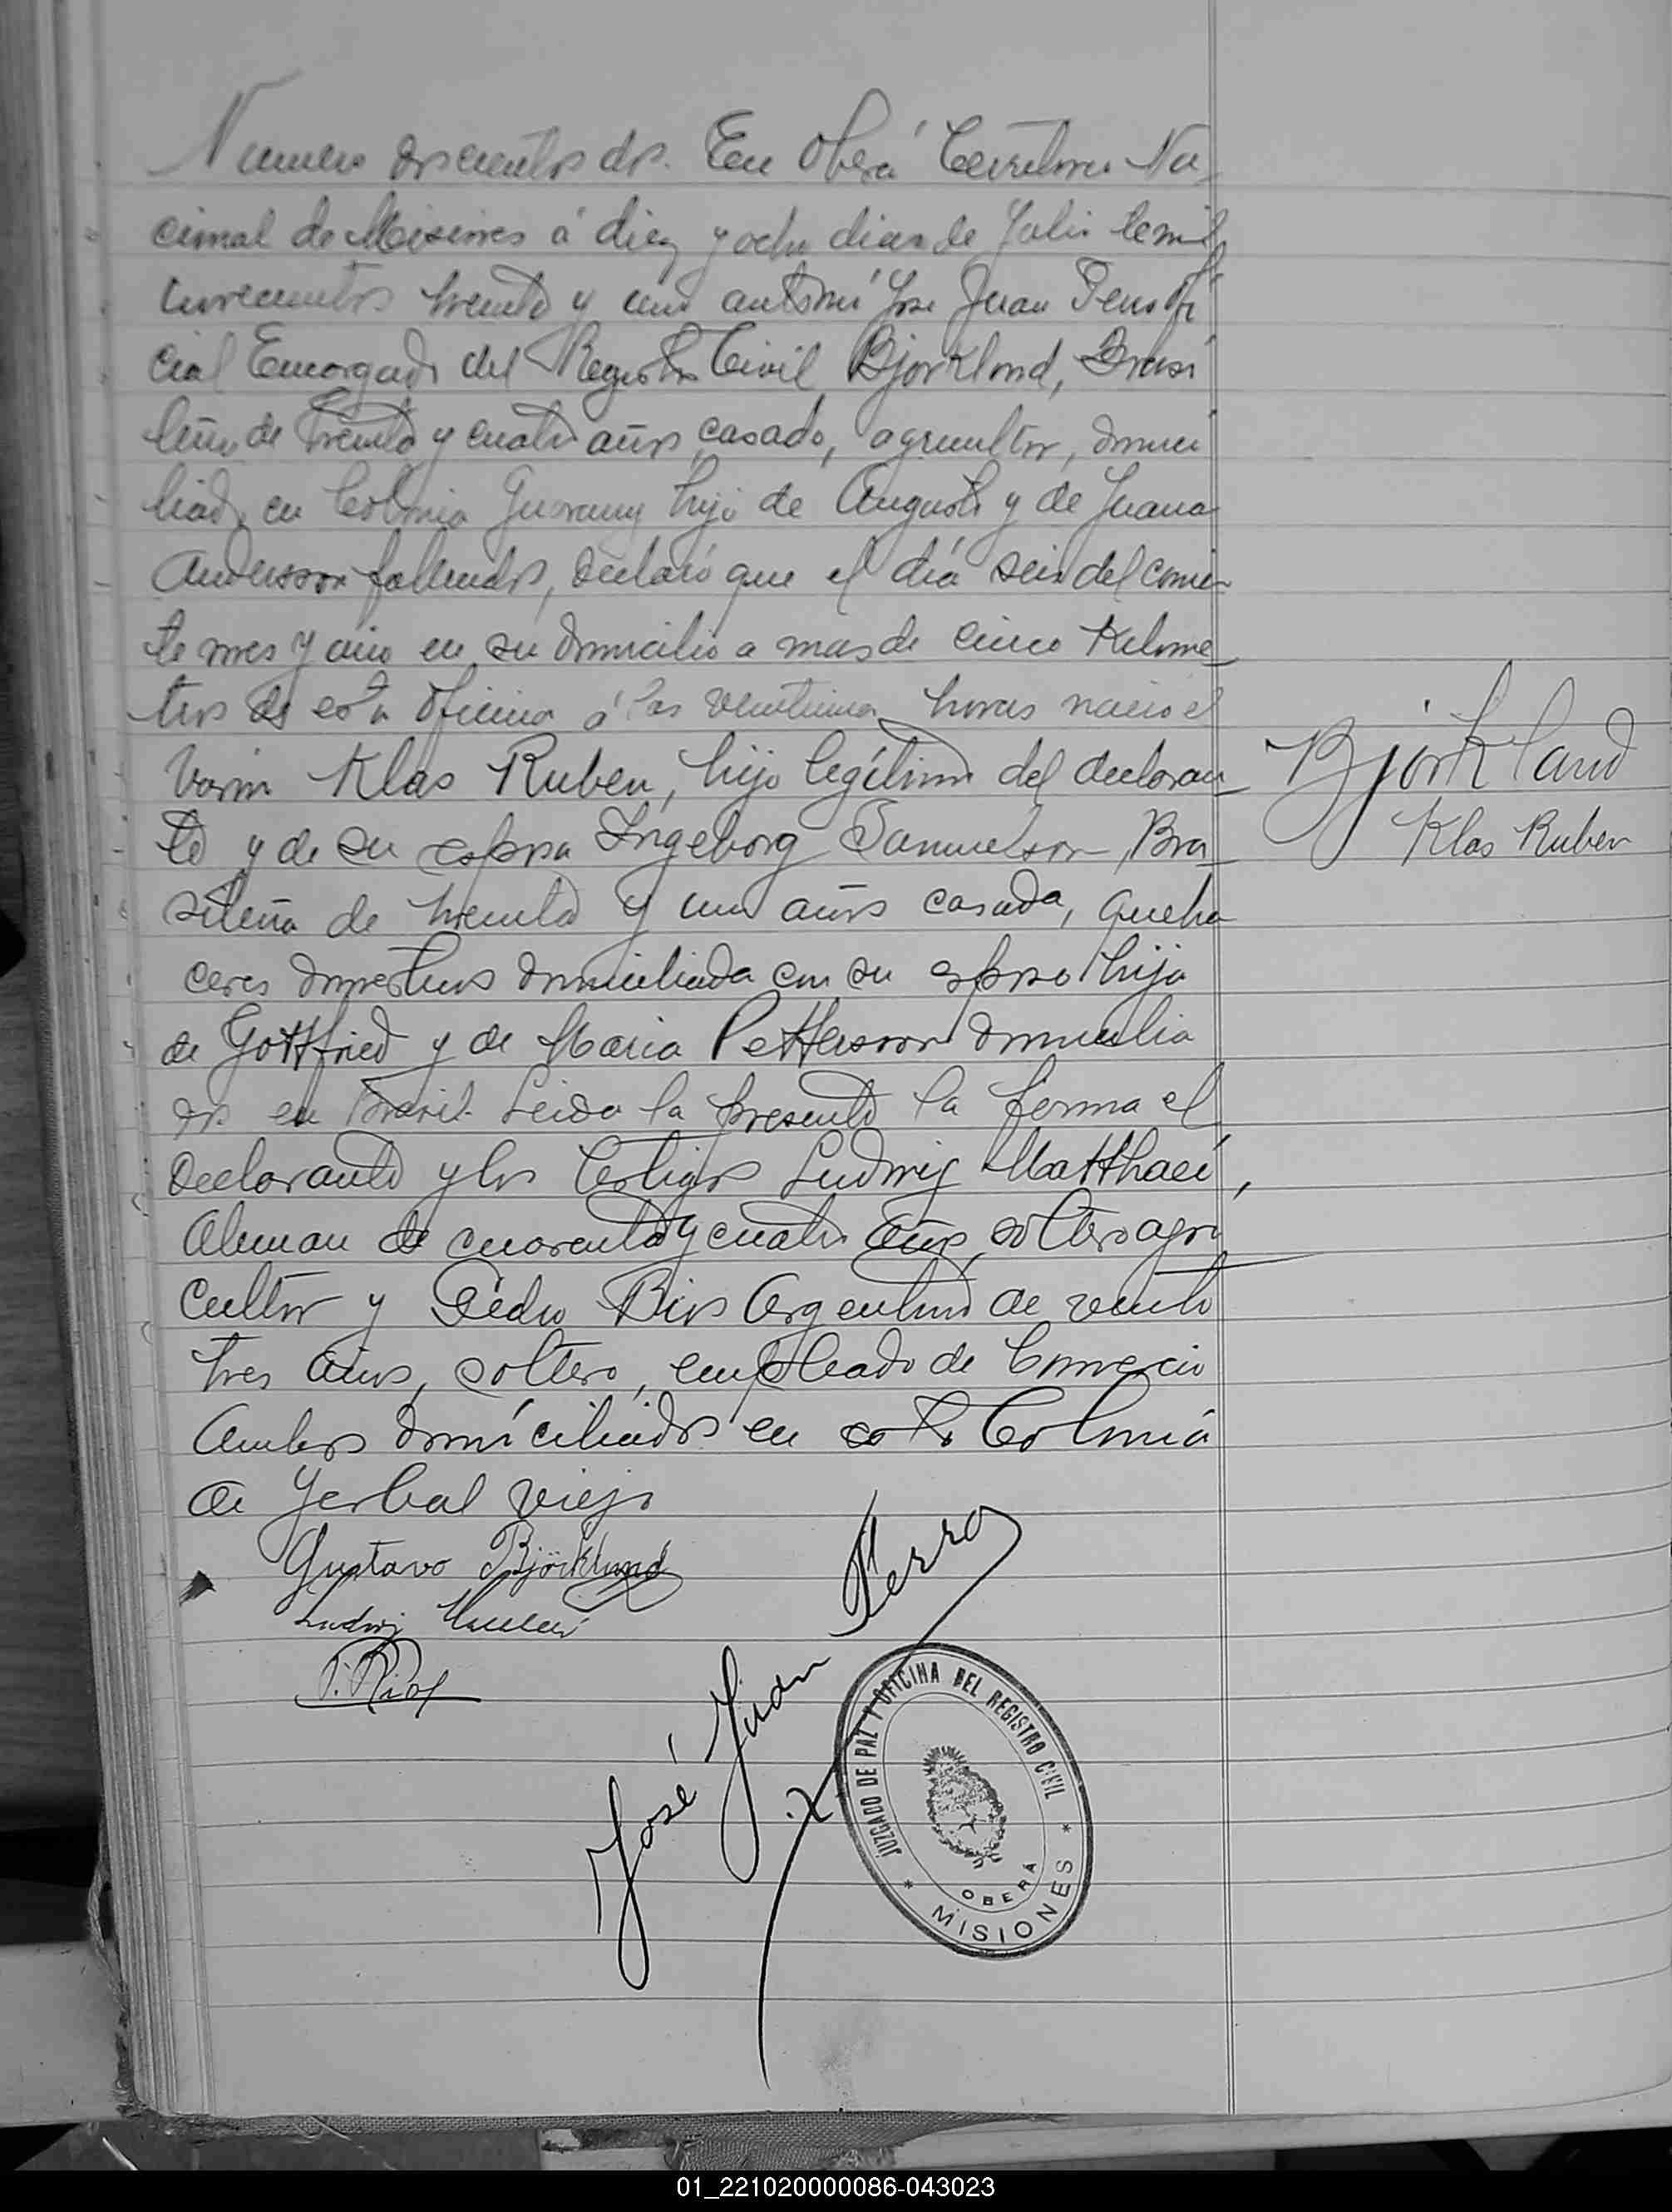 Numero doscientos dos. En Oberá Territorio Na-
cional de Misiones á diez y ocho dias de Julio de mil
novecientos treinta y uno ante mi José Juan Ferro Ofi
cial Encargado del Registro Civil Bjorklund, Brasi
leño de treinta y cuatro años, casado, agricultor, domici
liado en Colonia Guarany hijo de Augusto y de Juana
Andersson fallecidos, declaró que el día seis del corrien-
te mes y año en su domicilio a mas de cinco Kilome-
tros de esta Oficina á las veintiuna horas nacio el
Varon Klas Ruben, hijo legítimo del declaran-
te y de su esposa Ingeborg Samuelson, Bra-
sileña de treinta y un años casada, queha
ceres domesticos domiciliada con su esposo hija
de Gottfried y de Maria Pettersson domicilia
dos en Brasil. Leida la presente la firma el
declarante y los testigos Ludwig Matthaei,
Aleman de cuarenta y cuatro años, soltero agri
cultor y Pedro Rios Argentino de veinti
tres años, soltero, empleado de Comercio
Ambos domiciliados en esta Colonia
de Yerbal Viejo
Björklund
Klas Ruben
Gustavo Björklund
Ludwig
P. Rios
José Juan Ferro
JUZGADO DE PAZ Y OFICINA DEL REGISTRO CIVIL
OBERÁ
* MISIONES *
01_221020000086-043023